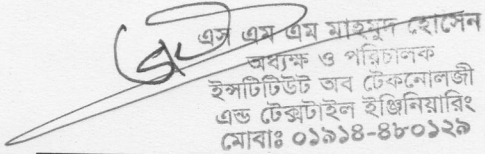 এস এম এম মাহমুদ হোসেন
অধ্যক্ষ ও পরিচালক
ইন্সটিটিউট অব টেকনোলজী
এন্ড টেক্সটাইল ইঞ্জিনিয়ারিং
মোবাঃ ০১৯১৪-৪৮০১২৯